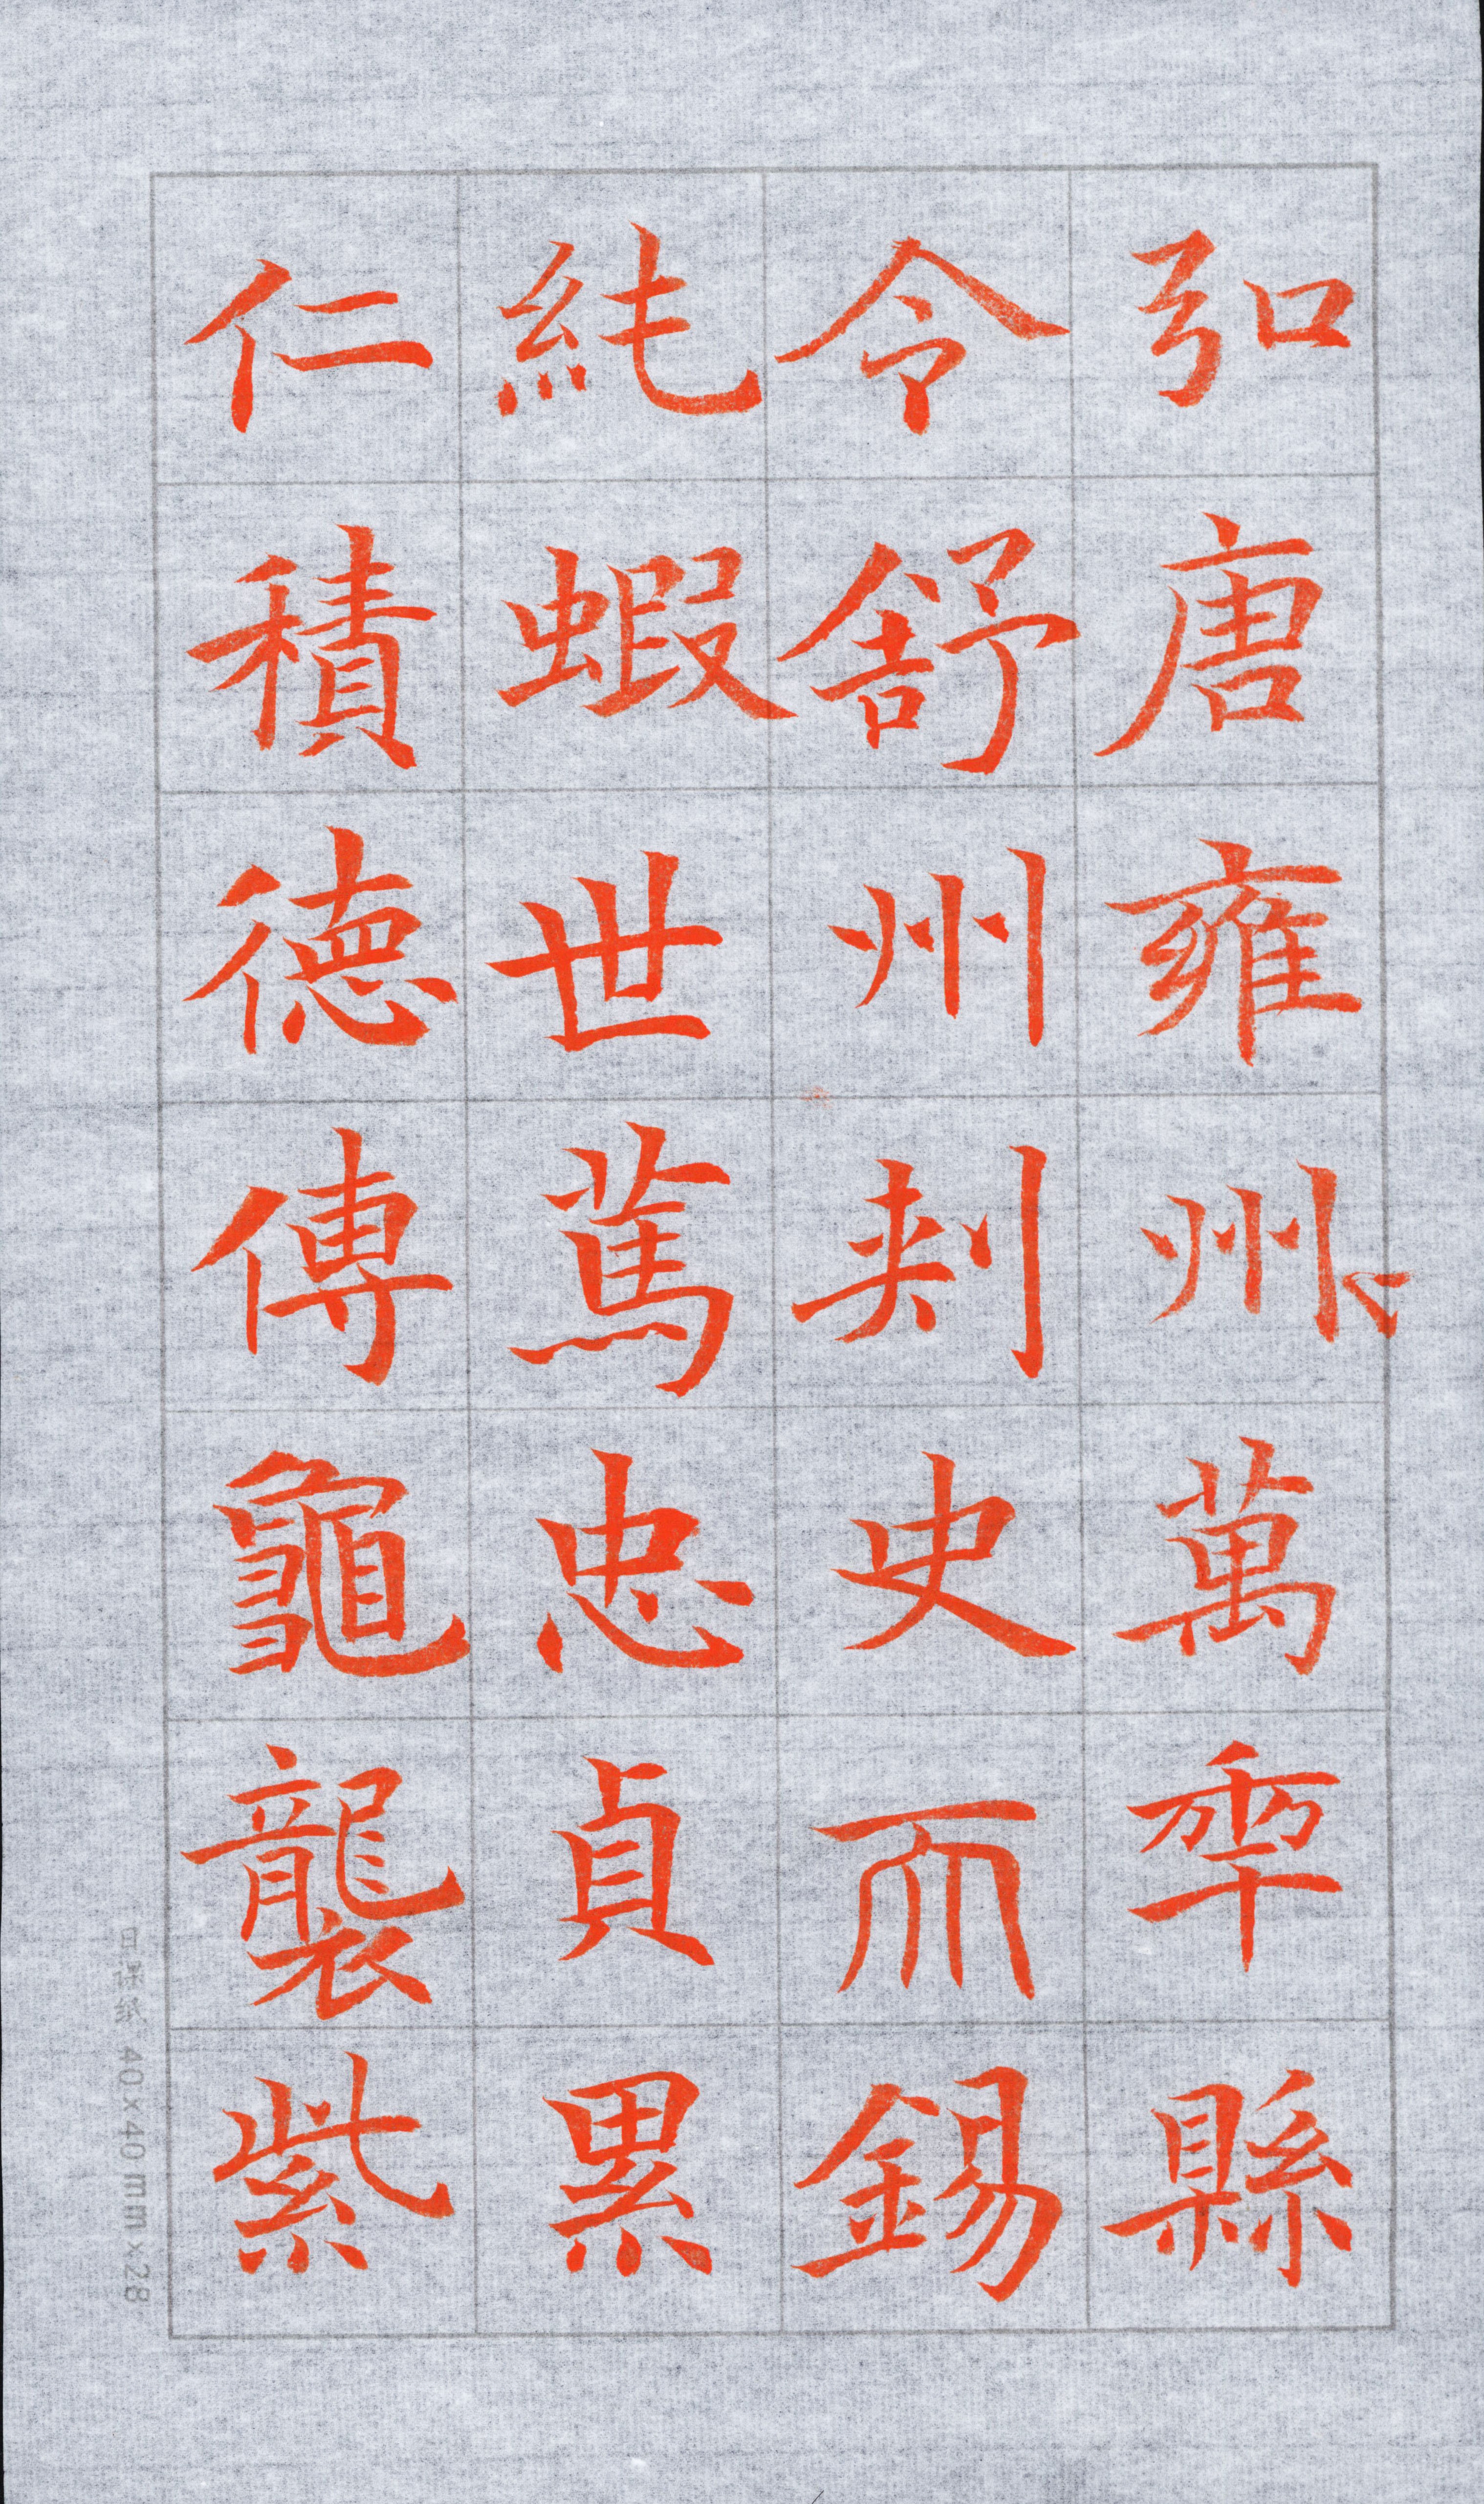 弘唐雍州〻萬年縣
令舒州刺史而錫
純蝦世篤忠貞累
仁積德傳龜襲紫
40×40mm×28